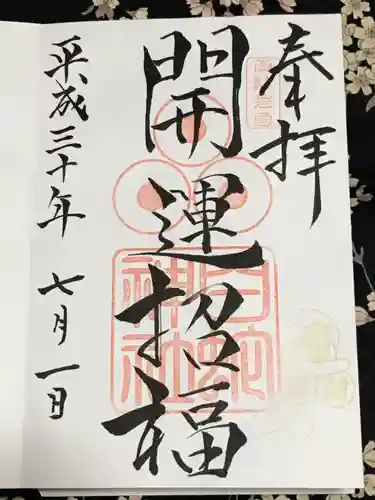 奉拝
開運招福
白蛇神社
平成三十年 七月一日